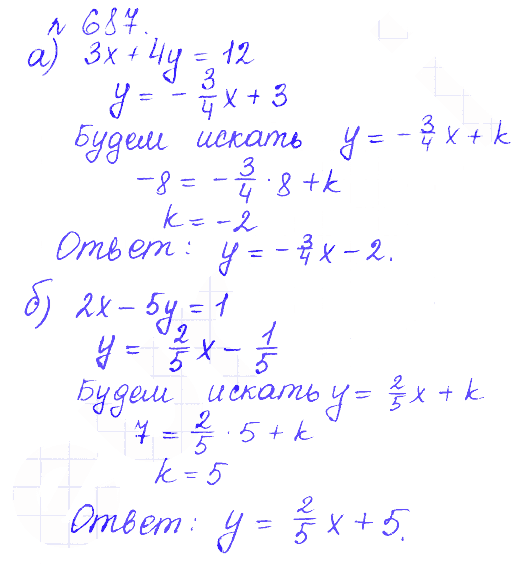 № 687.
а) 3x + 4y = 12
y = - 3/4 x + 3
Будем искать y = - 3/4 x + k
-8 = - 3/4 · 8 + k
k = -2
Ответ: y = - 3/4 x - 2.
б) 2x - 5y = 1
y = 2/5 x - 1/5
Будем искать y = 2/5 x + k
7 = 2/5 · 5 + k
k = 5
Ответ: y = 2/5 x + 5.